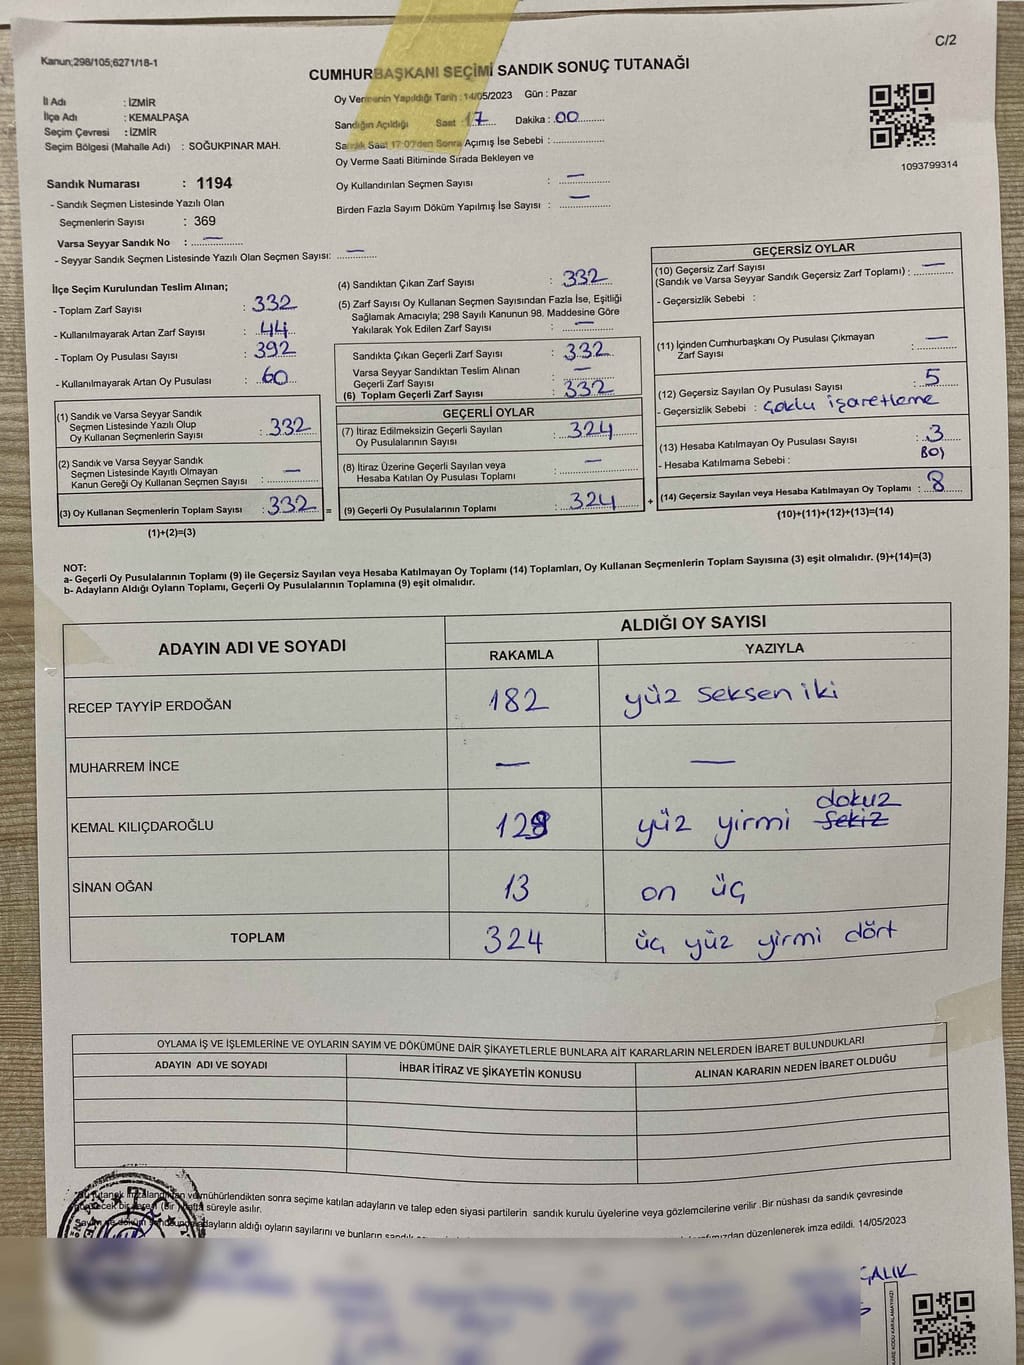 C/2
Kanun;298/105;6271/18-1
CUMHURBAŞKANI SEÇİMİ SANDIK SONUÇ TUTANAĞI
İl Adı : İZMİR
İlçe Adı : KEMALPAŞA
Seçim Çevresi : İZMİR
Seçim Bölgesi (Mahalle Adı) : SOĞUKPINAR MAH.
Oy Vermenin Yapıldığı Tarih : 14/05/2023 Gün : Pazar
Sandığın Açıldığı Saat : 17 Dakika : 00
Sandık Saat 17:00'den Sonra Açımış İse Sebebi :
Oy Verme Saati Bitiminde Sırada Bekleyen ve
Oy Kullandırılan Seçmen Sayısı : —
Birden Fazla Sayım Döküm Yapılmış İse Sayısı : —
1093799314
Sandık Numarası : 1194
- Sandık Seçmen Listesinde Yazılı Olan
Seçmenlerin Sayısı : 369
Varsa Seyyar Sandık No : —
- Seyyar Sandık Seçmen Listesinde Yazılı Olan Seçmen Sayısı: —
İlçe Seçim Kurulundan Teslim Alınan;
- Toplam Zarf Sayısı : 332
- Kullanılmayarak Artan Zarf Sayısı : 44
- Toplam Oy Pusulası Sayısı : 392
- Kullanılmayarak Artan Oy Pusulası : 60
(1) Sandık ve Varsa Seyyar Sandık
Seçmen Listesinde Yazılı Olup
Oy Kullanan Seçmenlerin Sayısı : 332
(2) Sandık ve Varsa Seyyar Sandık
Seçmen Listesinde Kayıtlı Olmayan
Kanun Gereği Oy Kullanan Seçmen Sayısı : —
(3) Oy Kullanan Seçmenlerin Toplam Sayısı : 332 =
(1)+(2)=(3)
(4) Sandıktan Çıkan Zarf Sayısı : 332
(5) Zarf Sayısı Oy Kullanan Seçmen Sayısından Fazla İse, Eşitliği
Sağlamak Amacıyla; 298 Sayılı Kanunun 98. Maddesine Göre
Yakılarak Yok Edilen Zarf Sayısı : —
Sandıkta Çıkan Geçerli Zarf Sayısı : 332
Varsa Seyyar Sandıktan Teslim Alınan
Geçerli Zarf Sayısı : —
(6) Toplam Geçerli Zarf Sayısı : 332
GEÇERLİ OYLAR
(7) İtiraz Edilmeksizin Geçerli Sayılan
Oy Pusulalarının Sayısı : 324
(8) İtiraz Üzerine Geçerli Sayılan veya
Hesaba Katılan Oy Pusulası Toplamı : —
(9) Geçerli Oy Pusulalarının Toplamı : 324 +
GEÇERSİZ OYLAR
(10) Geçersiz Zarf Sayısı
(Sandık ve Varsa Seyyar Sandık Geçersiz Zarf Toplamı) : —
- Geçersizlik Sebebi :
(11) İçinden Cumhurbaşkanı Oy Pusulası Çıkmayan
Zarf Sayısı : —
(12) Geçersiz Sayılan Oy Pusulası Sayısı : 5
- Geçersizlik Sebebi : Çoklu işaretleme
(13) Hesaba Katılmayan Oy Pusulası Sayısı : 3
- Hesaba Katılmama Sebebi : Boş
(14) Geçersiz Sayılan veya Hesaba Katılmayan Oy Toplamı : 8
(10)+(11)+(12)+(13)=(14)
NOT:
a- Geçerli Oy Pusulalarının Toplamı (9) ile Geçersiz Sayılan veya Hesaba Katılmayan Oy Toplamı (14) Toplamları, Oy Kullanan Seçmenlerin Toplam Sayısına (3) eşit olmalıdır. (9)+(14)=(3)
b- Adayların Aldığı Oyların Toplamı, Geçerli Oy Pusulalarının Toplamına (9) eşit olmalıdır.
ADAYIN ADI VE SOYADI
ALDIĞI OY SAYISI
RAKAMLA YAZIYLA
RECEP TAYYİP ERDOĞAN 182 yüz seksen iki
MUHARREM İNCE — —
KEMAL KILIÇDAROĞLU 129 yüz yirmi sekiz dokuz
SİNAN OĞAN 13 on üç
TOPLAM 324 üç yüz yirmi dört
OYLAMA İŞ VE İŞLEMLERİNE VE OYLARIN SAYIM VE DÖKÜMÜNE DAİR ŞİKAYETLERLE BUNLARA AİT KARARLARIN NELERDEN İBARET BULUNDUKLARI
ADAYIN ADI VE SOYADI İHBAR İTİRAZ VE ŞİKAYETİN KONUSU ALINAN KARARIN NEDEN İBARET OLDUĞU
ve mühürlendikten sonra seçime katılan adayların ve talep eden siyasi partilerin sandık kurulu üyelerine veya gözlemcilerine verilir .Bir nüshası da sandık çevresinde
süreyle asılır.
adayların aldığı oyların sayılarını ve bunların düzenlenerek imza edildi. 14/05/2023
ÇALIK